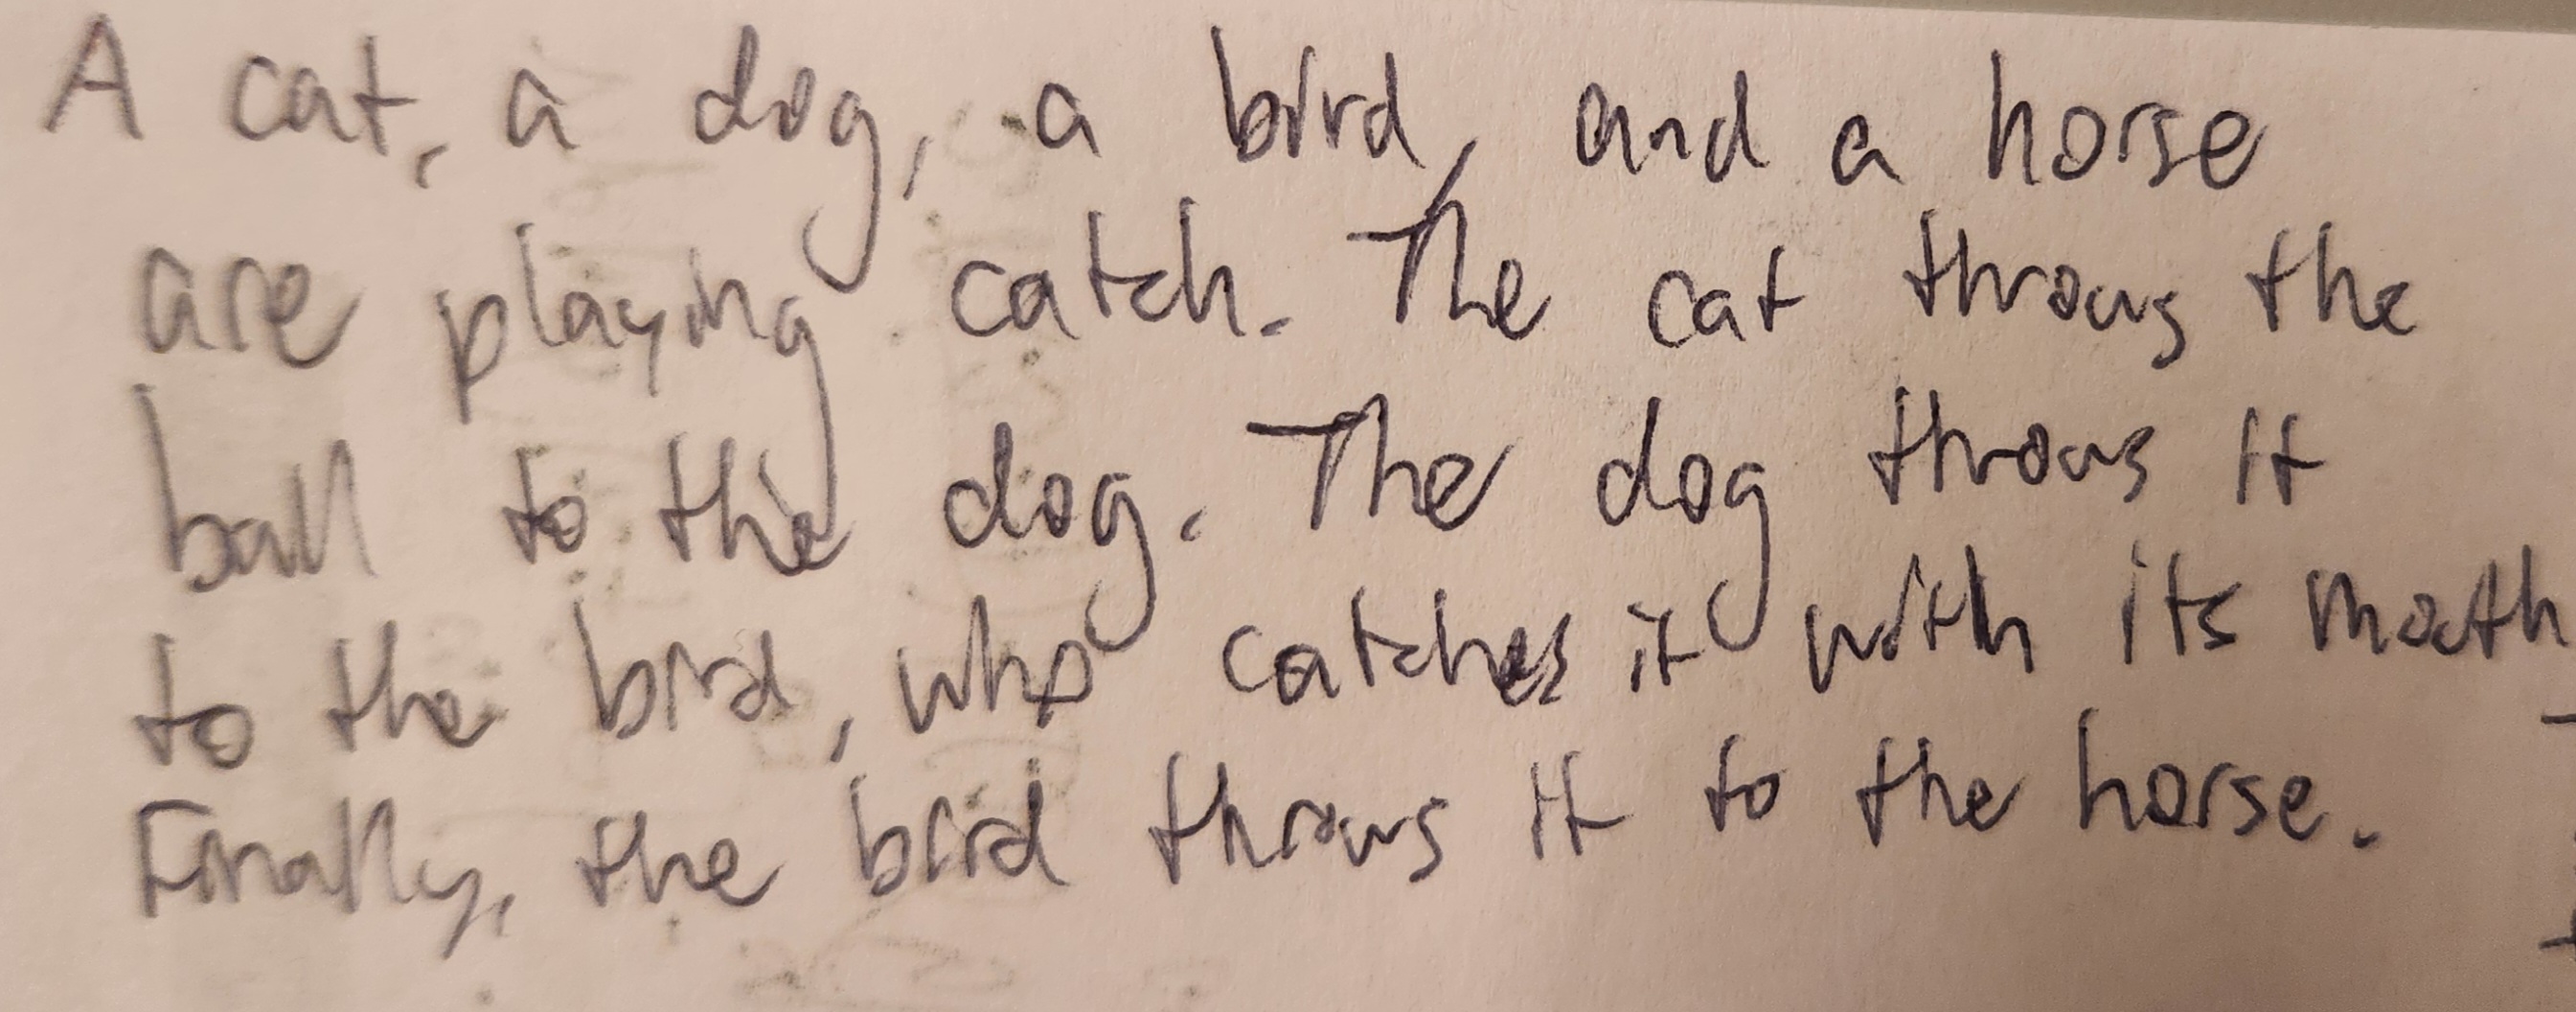 A cat, a dog, a bird, and a horse
are playing catch. The cat throws the
ball to the dog. The dog throws it
to the bird, who catches it with its mouth
Finally, the bird throws it to the horse.